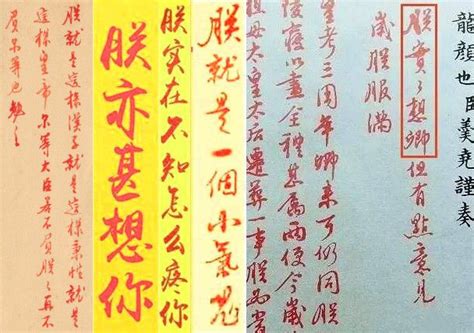 龍顏也臣羹堯謹奏
朕實々想卿但有點意見
歲朕服滿
皇考三周年卿來可仍同朕
陵寢以盡全禮甚屬兩便今歲
祖母太皇太后遷葬一事朕為著
朕就是一個小氣鬼
朕实在不知怎么疼你
朕亦甚想你
朕就是這樣漢子就是這樣秉性就是
這樣皇帝爾等大臣若不負朕朕再不
負爾等也勉之